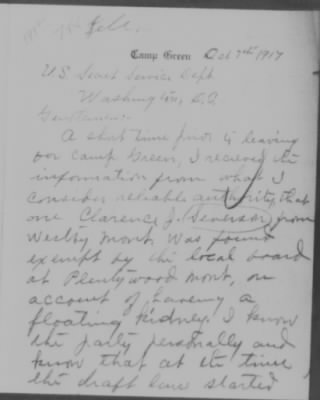 Camp Green Oct 7th 1917
U.S. Secret Service Dept
Washington, D.C.
Gentlemen:-
A short time prior to leaving
for Camp Green, I recieved the
information from what I
consider reliable authority, that
one Clarence J. Severson, from
Westby Mont. was found
exempt by the local board
at Plentywood Mont, on
account of haveing a
floating kidney. I know
the party personally and
know that at the time
the draft law started